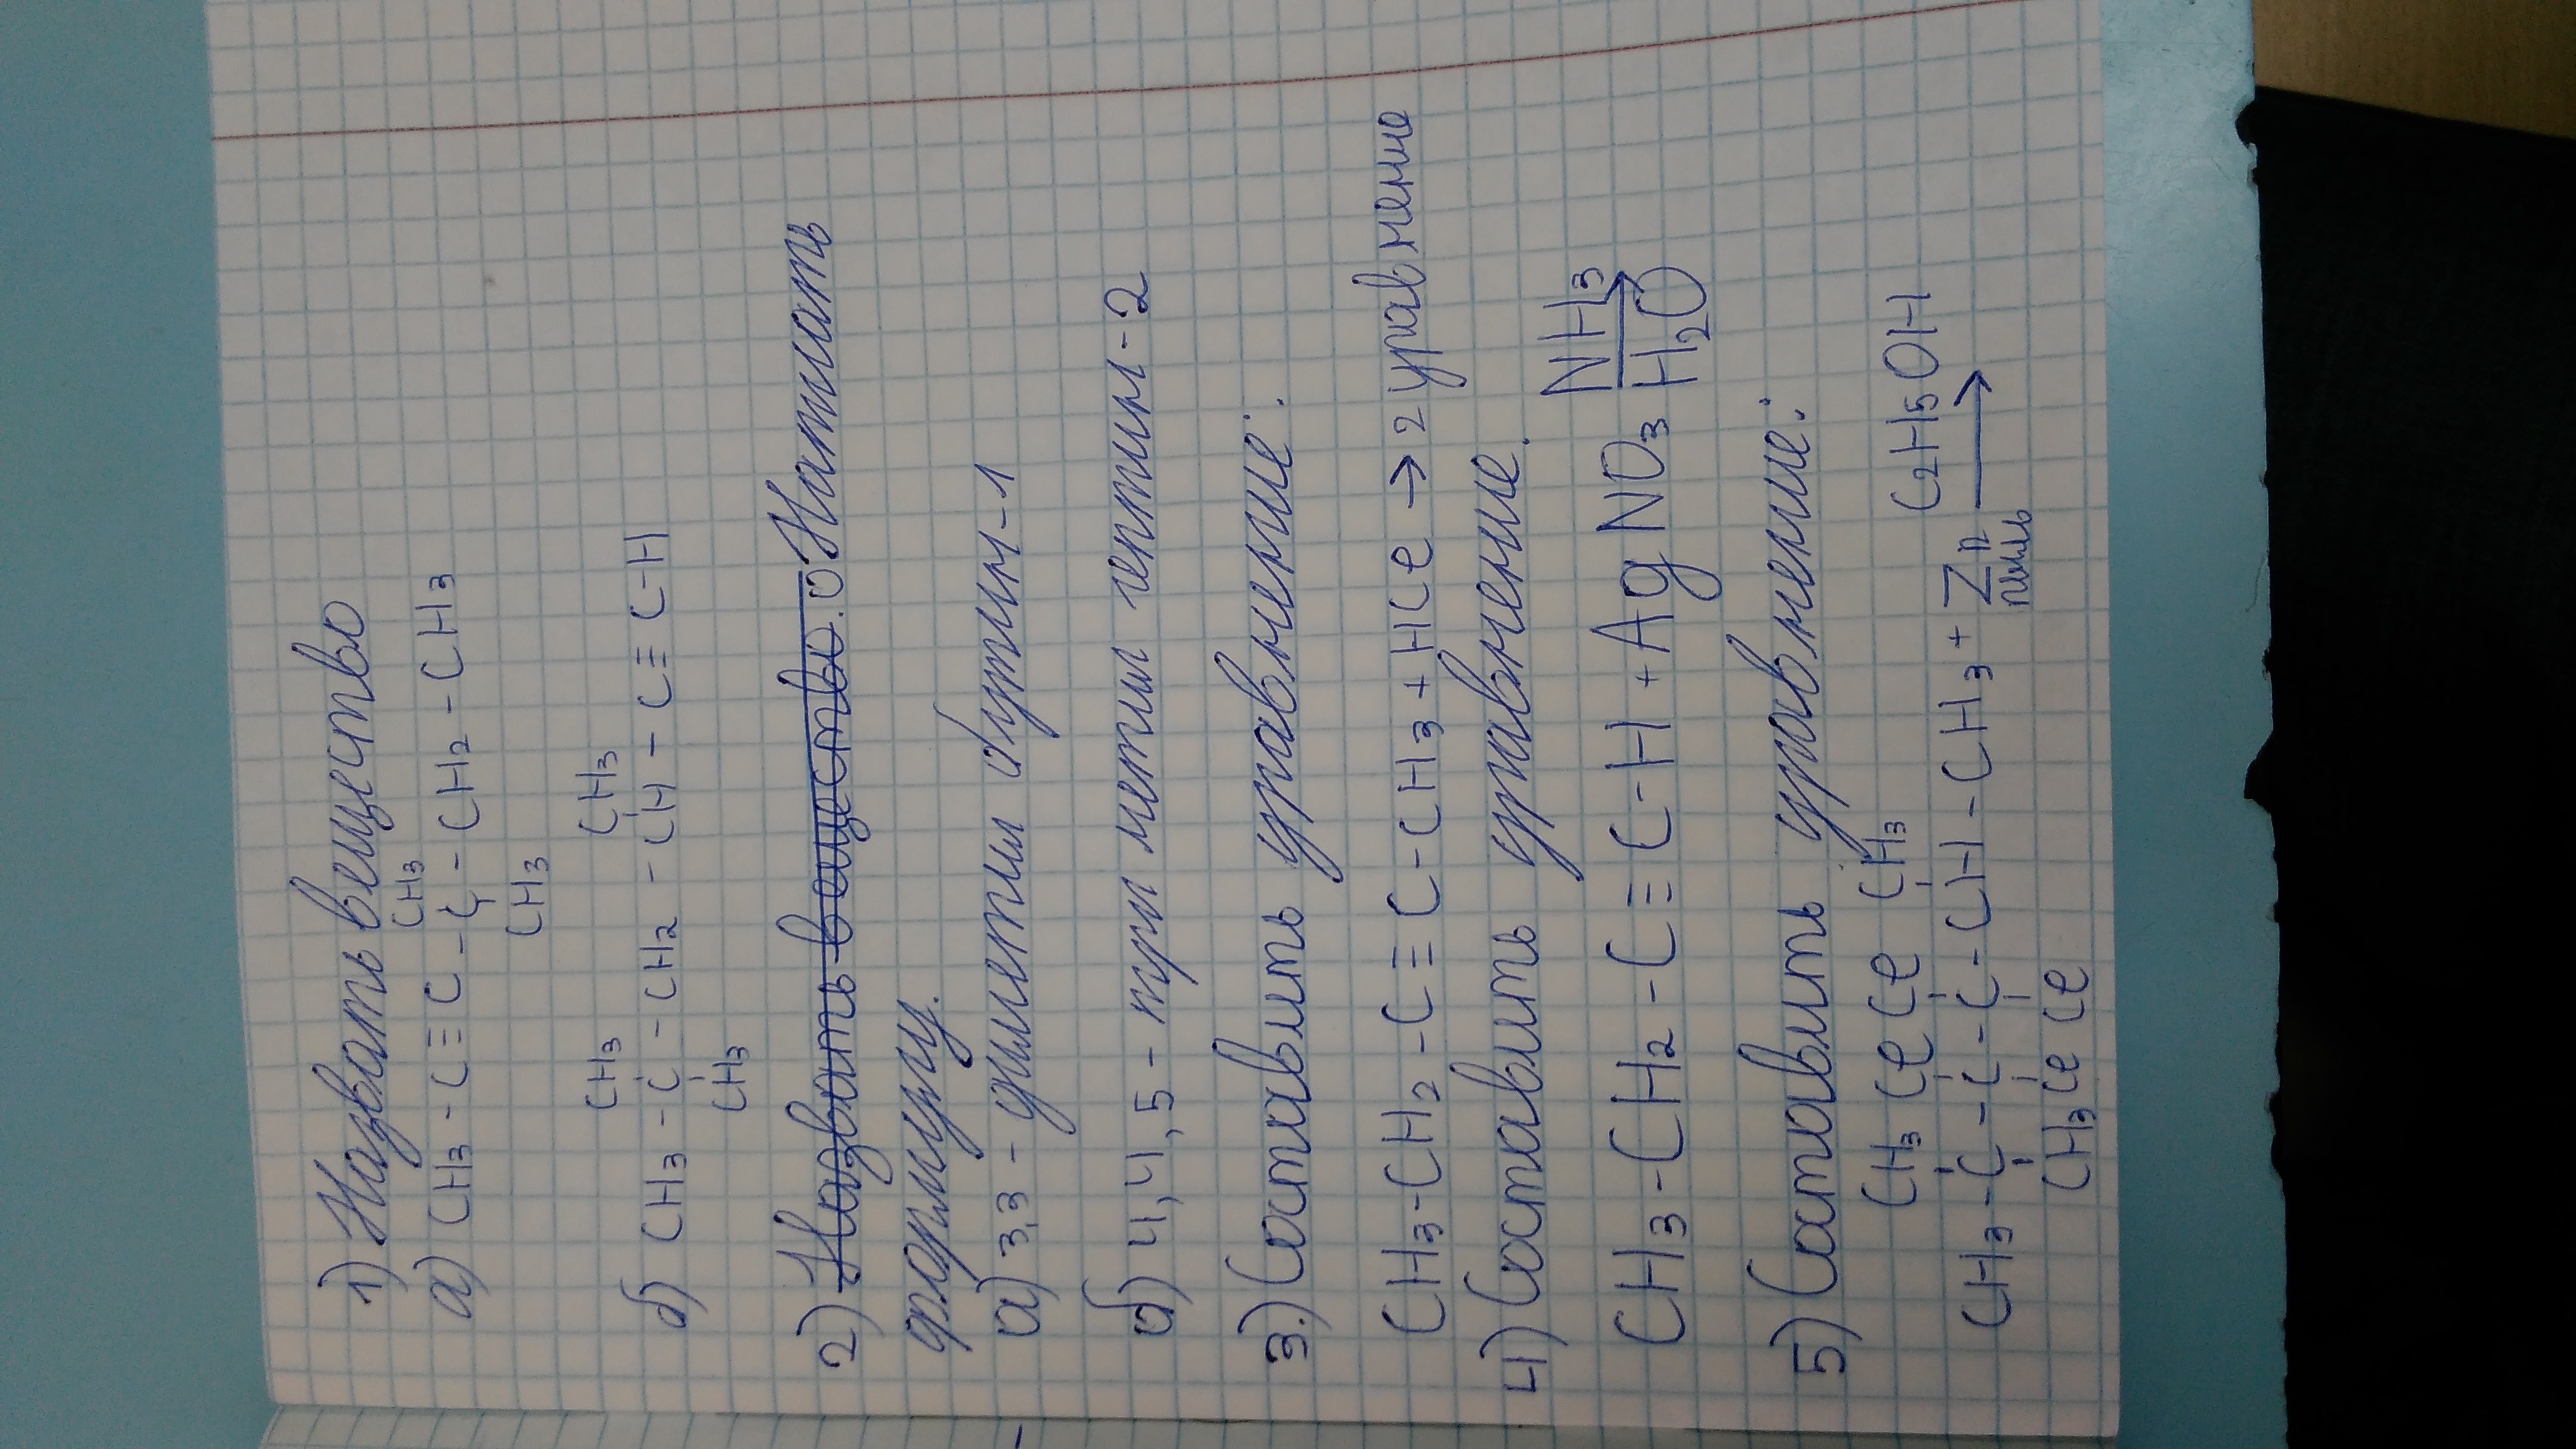 1) Назвать вещество
CH3
а) CH3 - C ≡ C - C - CH2 - CH3
CH3
CH3 CH3
б) CH3 - C - CH2 - CH - C ≡ C-H
CH3
2) Назвать вещество. Написать
формулу.
а) 3,3 - диметил бутин-1
б) 4,4,5 - три метил гептин-2
3.) Составить уравнение:
CH3-CH2-C ≡ C-CH3 + HCl → 2 уравнение
4) Составить уравнение.
NH3
CH3-CH2-C ≡ C-H + AgNO3 →
H2O
5) Составить уравнение:
CH3 Cl Cl CH3 C2H5OH
CH3 - C - C - C - CH - CH3 + Zn →
CH3 Cl Cl пыль